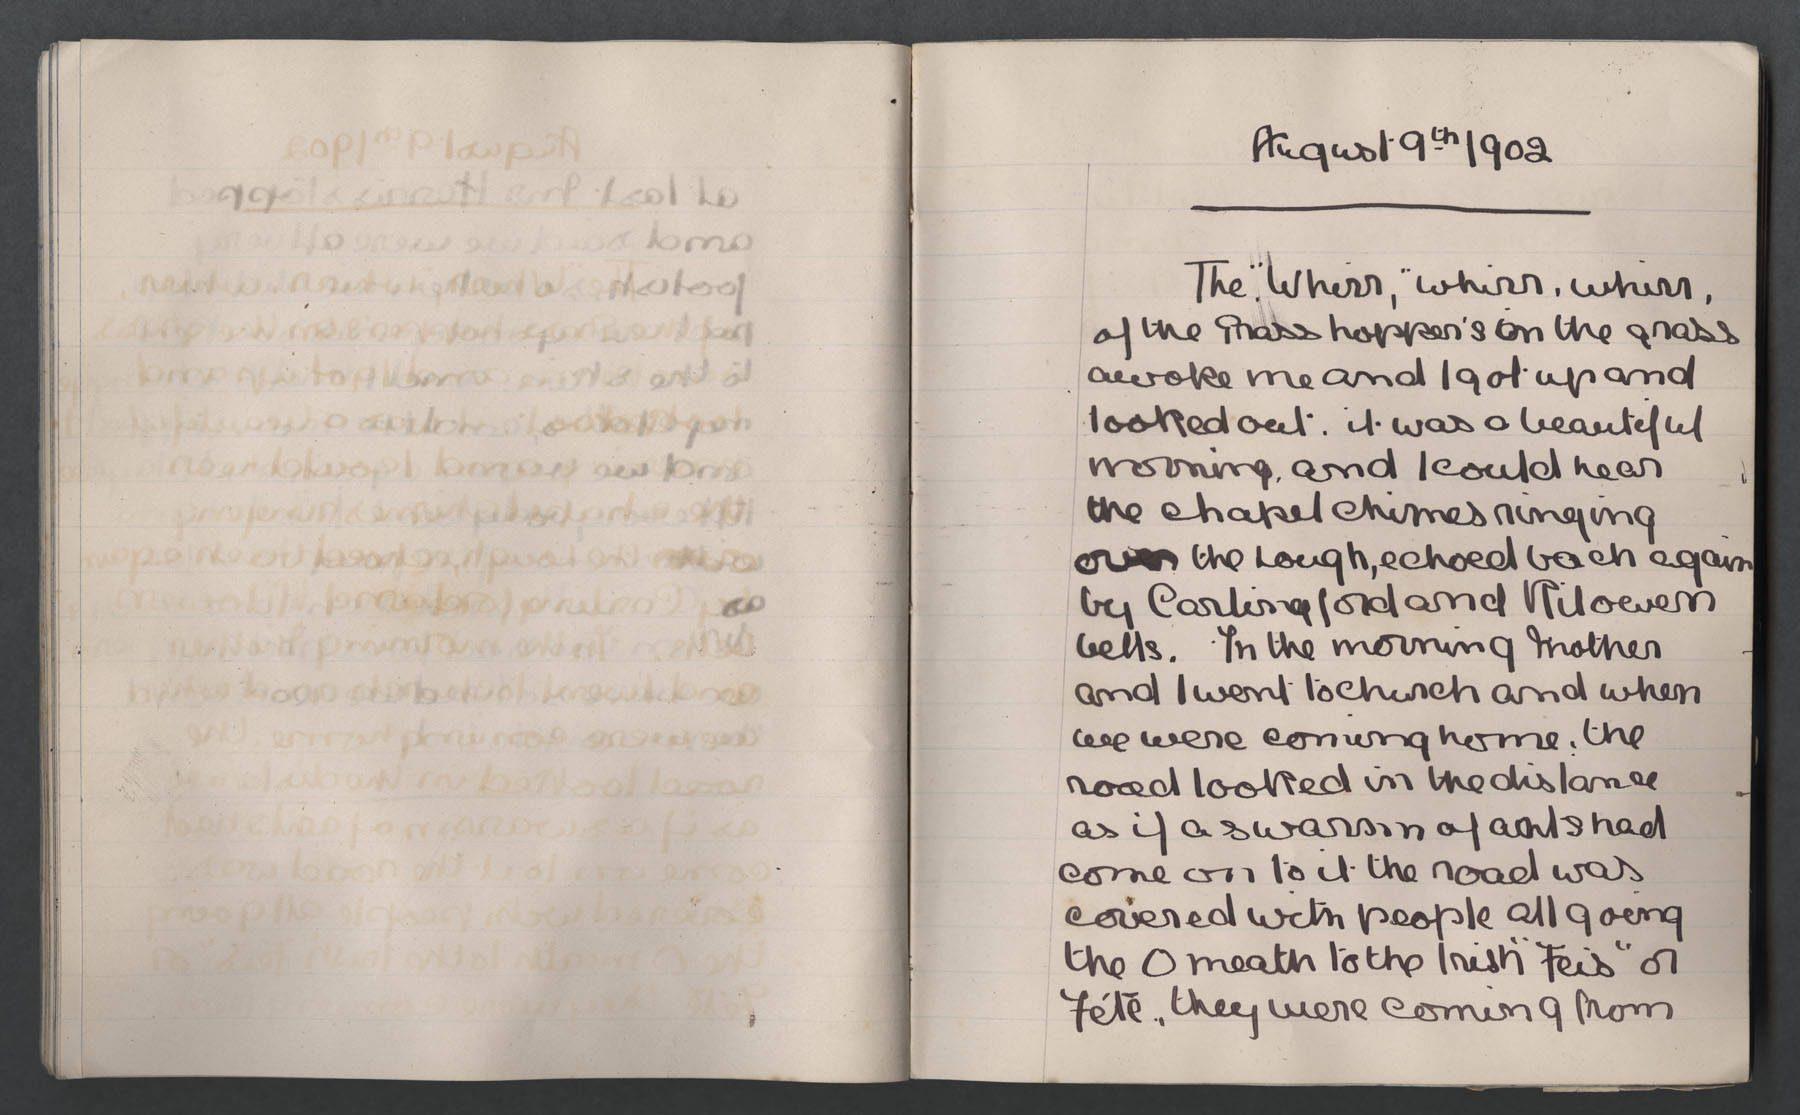 August 9th 1902
The "Whirr," whirr, whirr,
of the Grass hopper's in the grass
awoke me and I got up and
looked out. it was a beautiful
morning, and I could hear
the chapel chimes ringing
over the Lough, echoed back again
by Carlingford and Kilowen
bells. In the morning Mother
and I went to church and when
we were coming home, the
road looked in the distance
as if a swarm of ants had
come on to it the road was
covered with people all going
the O meath to the Irish "Feis" or
Fété, they were coming from